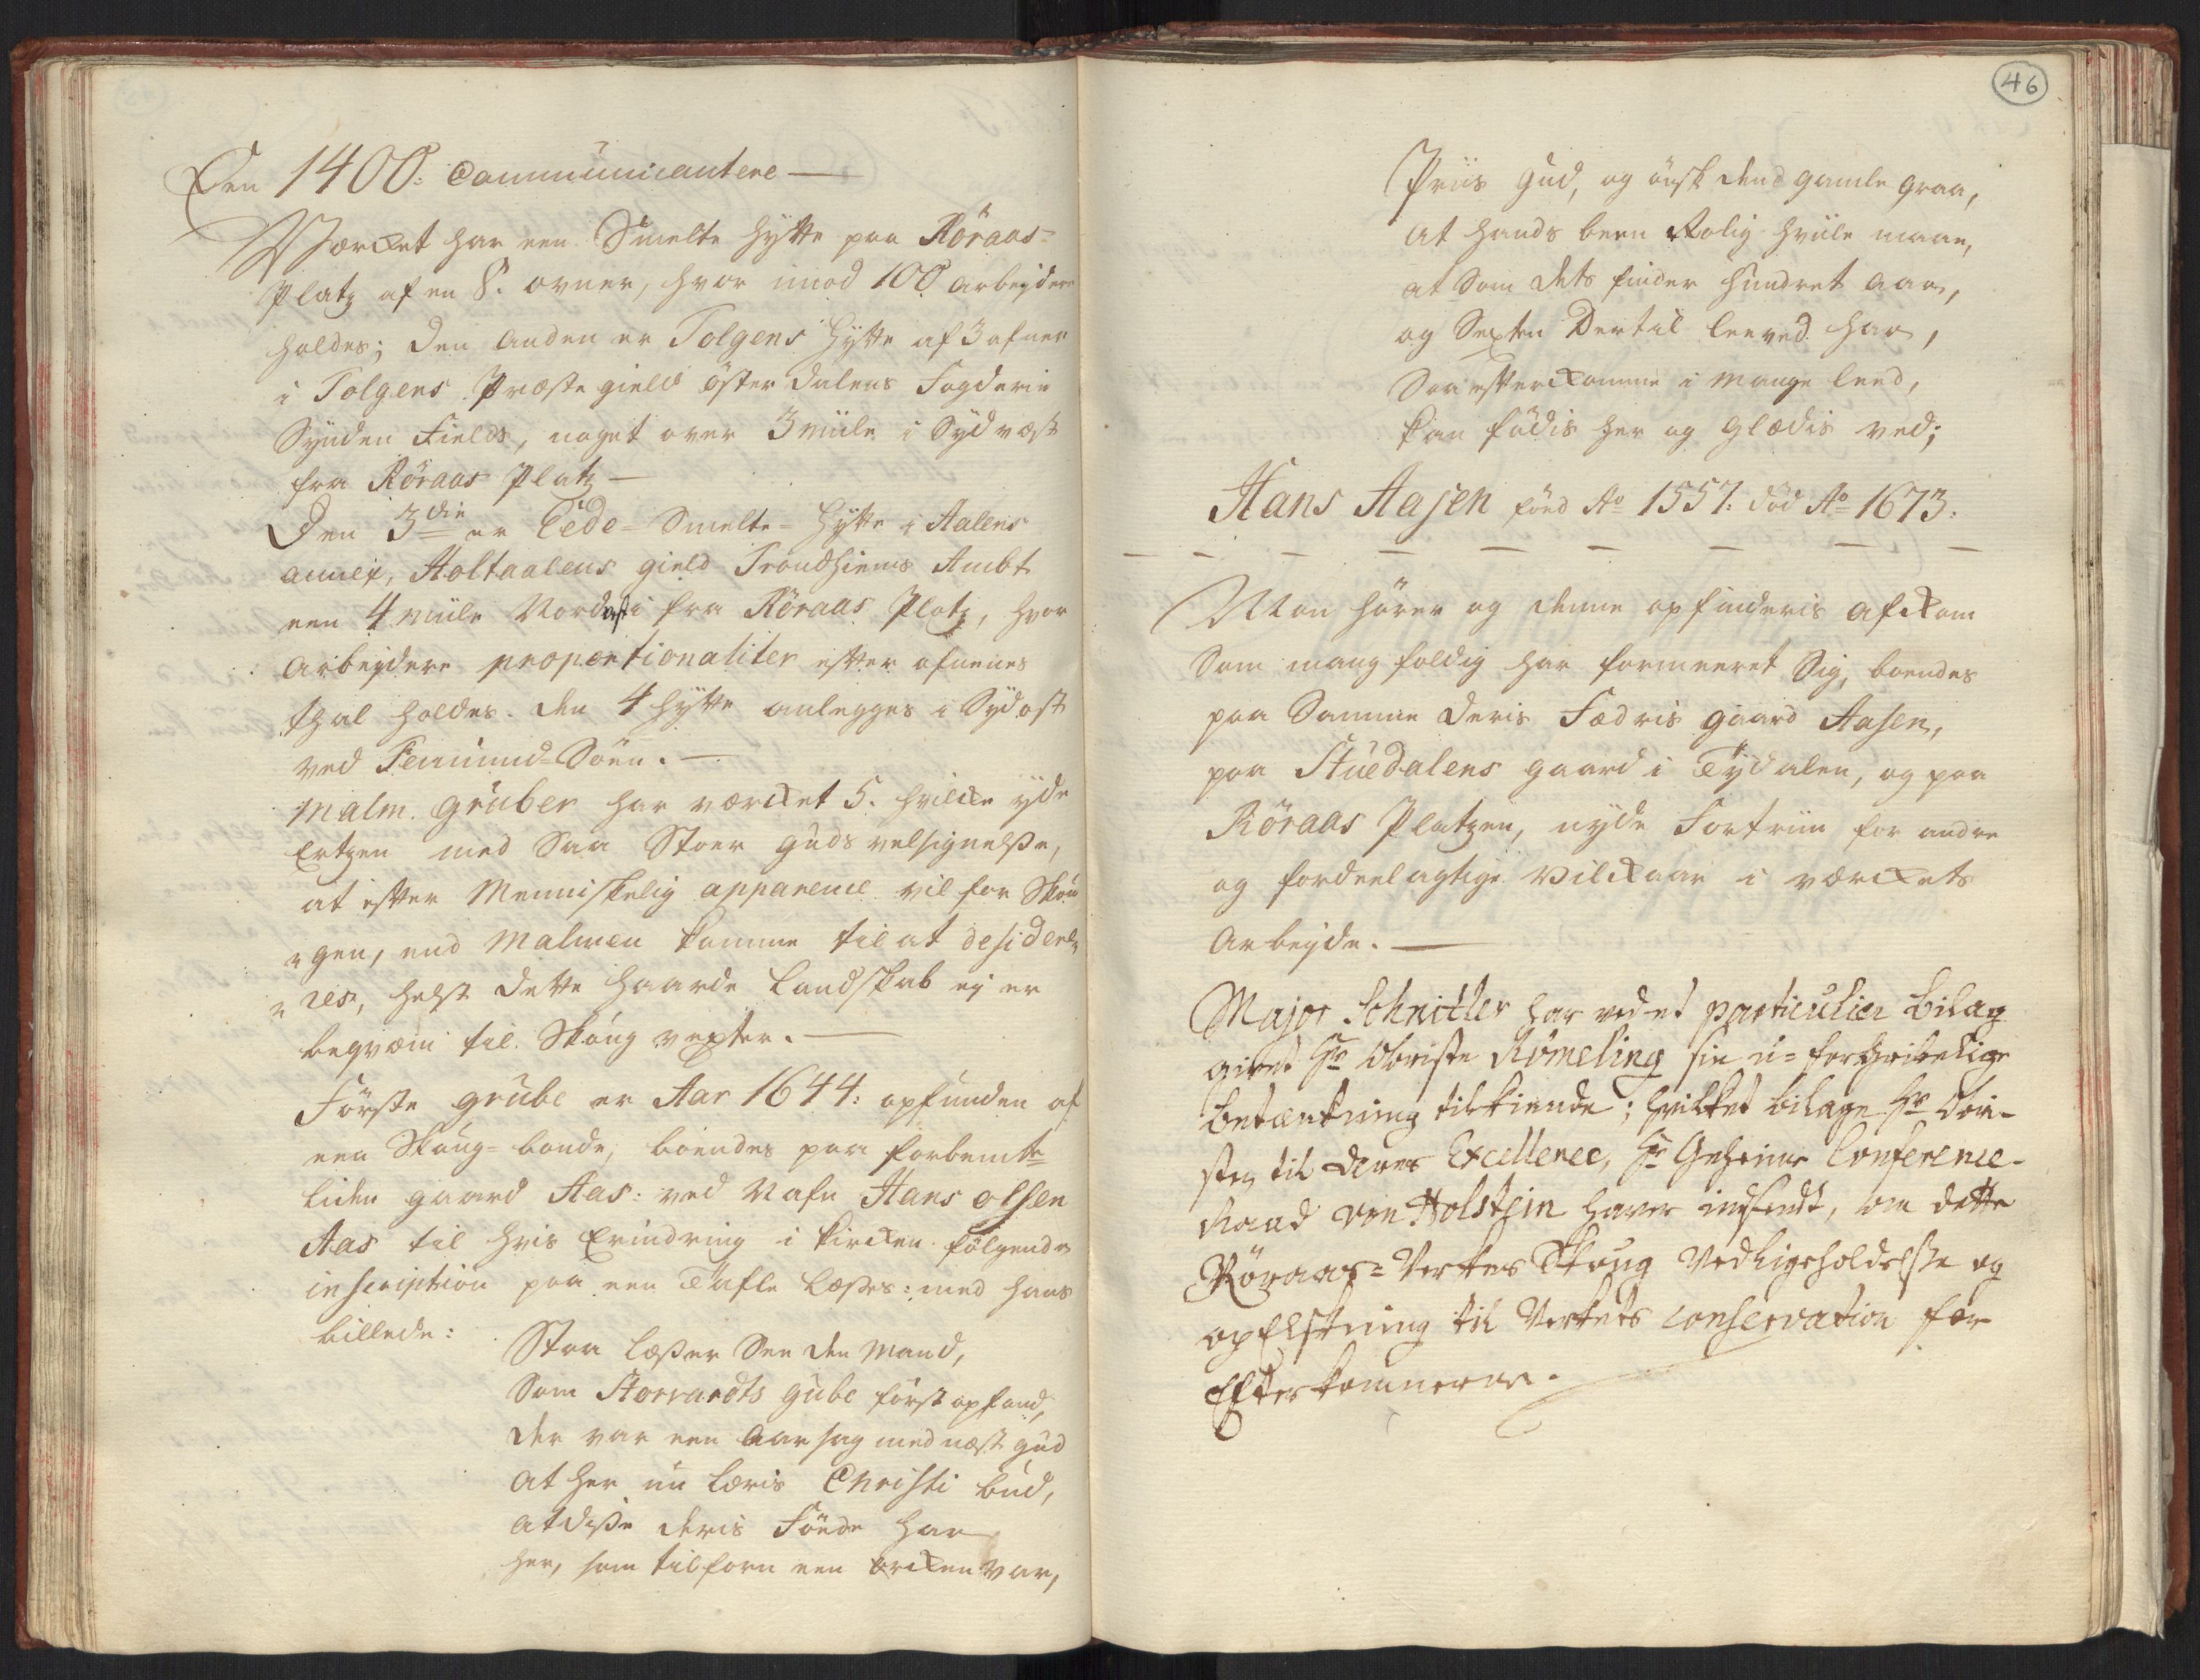 Den 1400: Communicantere —
Værcket har een Smelte hÿtte paa Röraas=
Platz af en 8. ovner, hvor imod 100 arbeÿdere
holdes; den anden er Tolgens hÿtte af 3 ofner
i Tolgens Præste gield Österdalens Fogderie
Sÿnden Fields, noget over 3 miile i Sÿdvæst
fra Röraas Platz —
Den 3die er Eede-Smelte-hÿtte i Aalens
annex, Holtaalens gield Trondhiems Ambt
een 4 miile Nordvest i fra Röraas Platz, hvor
arbeÿdere proportionaliter efter ofnenes
thal holdes. den 4 hÿtte anlegges i Sÿdost
ved Femund-Söen. —
Malm. gruber har værcket 5. hvilcke ÿde
Ertzen med Saa Stoer guds velsignelße,
at efter Menniskelig apparence vil for Skou
„gen, end Malmen komme til at deside„
„res, helst dette haarde Landskab eÿ er
beqvæm til Skoug vexter. —
Förste grube er Aar 1644: opfunden af
een Skoug=bonde, boendes paa forbemte
liden gaard Aas: ved Nafn Hans olsen
Aas til hvis Erindring i kircken fölgende
inscription paa een Tafle læses: med hans
billede:
Staa læßer See den Mand,
Som Storvardts gube först opfand,
der var een Aarsag med næst gud
at her nu læris Christi bud,
at diße deris Föede har
her, som tilforn een örcken var,
46
Priis gud, og önsk dend gamle graa,
at hands been Rolig hviile maae,
at Som dets finder hundret aar,
og Sexten Dertil leeved har,
Saa efterkomme i mange leed,
kan födis her og glædis ved;
Hans Aasen föed Ao 1557: död Ao 1673:
Man hörer og denne opfinderis afckom
Som mangfoldig har formeeret Sig, boendes
paa Samme deris Fædris gaard Aasen,
paa Stuedalens gaard i Tÿdalen, og paa
Röraas Platzen, nÿde Fortriin for andre
og fordeelagtige Vilckaar i værckets
Arbeÿde. —
Major Schnitler har ved et particulier bilag
givet Hr Obriste Römeling sin u=forgribelige
betænkning tilkiende; hvilket bilage Hr Obri-
sten til deres Excellence, Hr Geheime Conference-
Raad von Holstein haver indsendt, om dette
Röraas=Verkes Skoug Vedligeholdelße og
opElskning til Verkets conservation for
Efterkommerne.